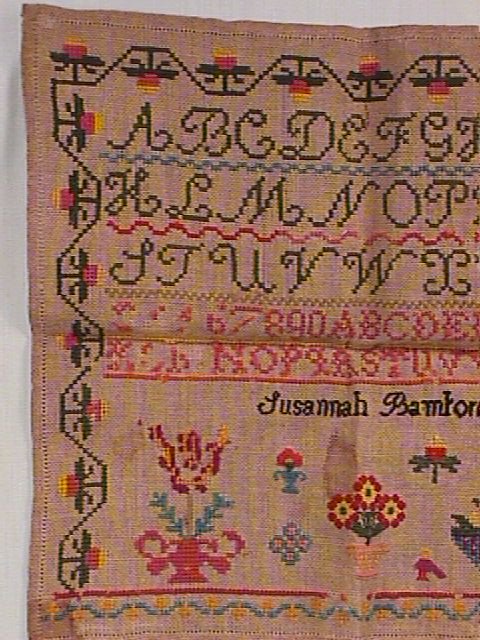 A B C D E F G H
K L M N O P
S T U V W X
6 7 8 9 0 A B C D E
N O P Q R S T U V
Susannah Bamford